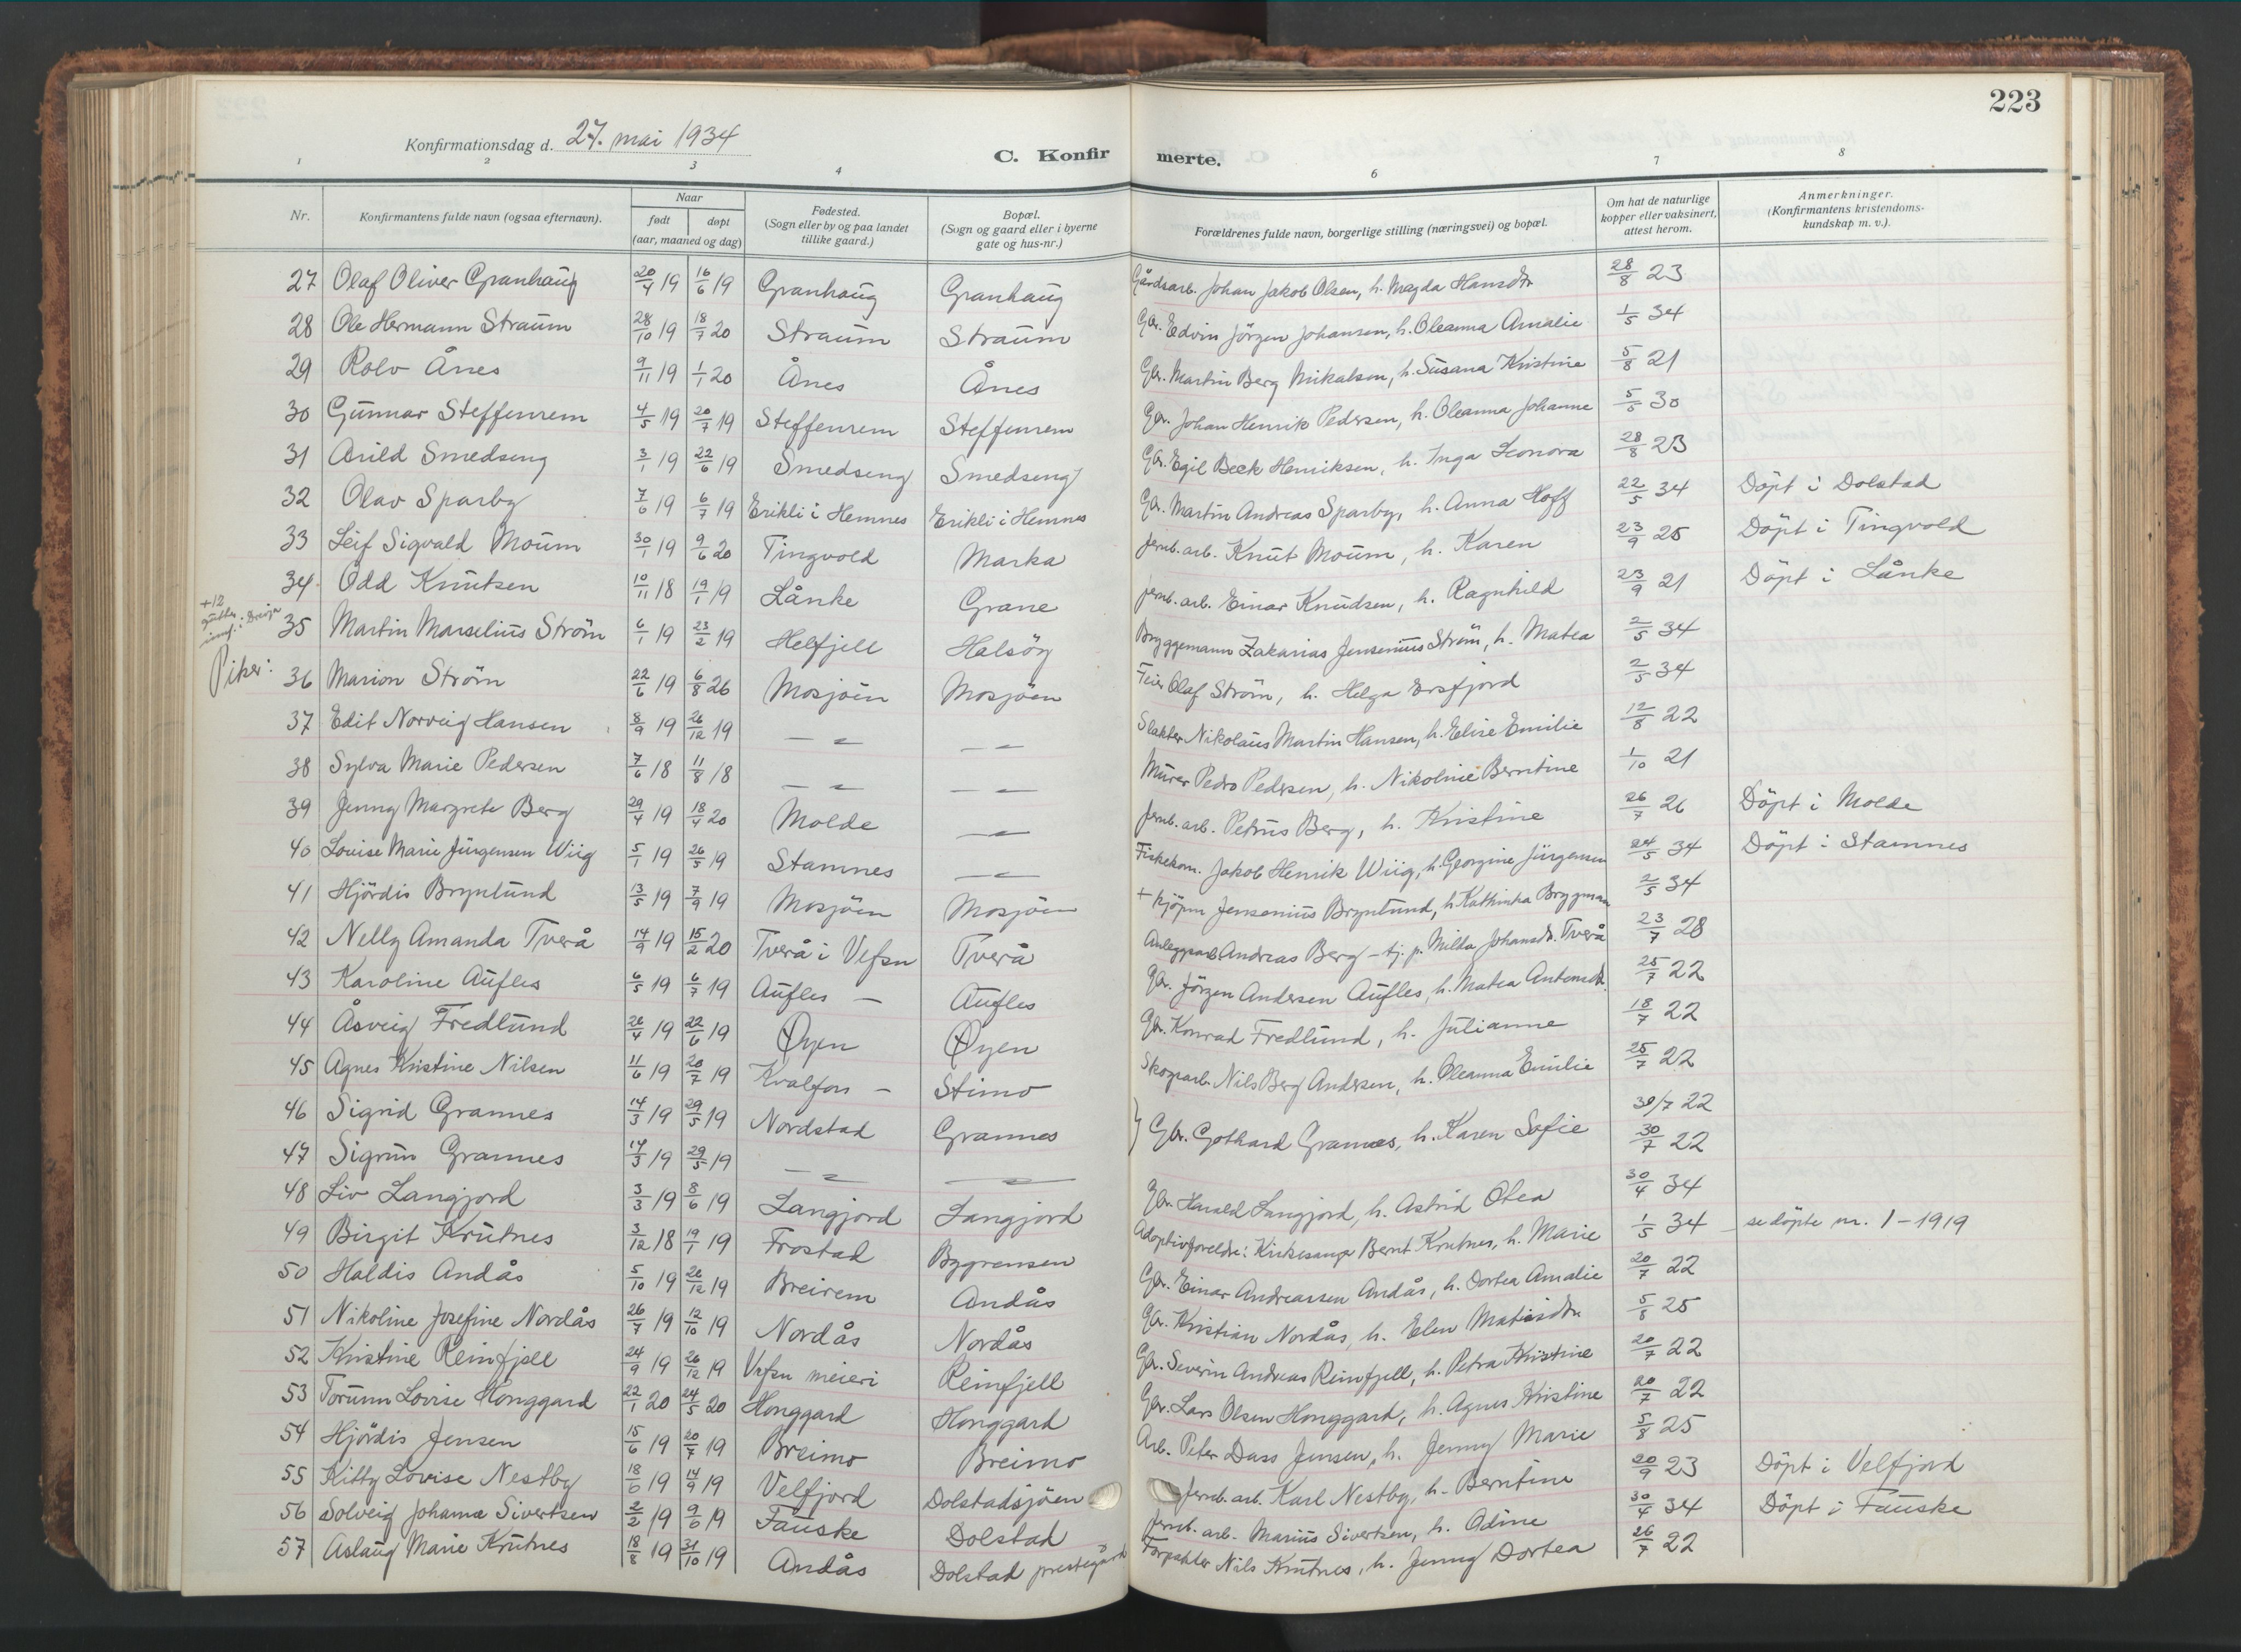 223
Konfirmationsdag d. 27. mai 1934
C. Konfirmerte.
1 2 3 4 6 7 8
Nr. | Konfirmantens fulde navn (ogsaa efternavn). | Naar født døpt (aar, maaned og dag) | Fødested. (Sogn eller by og paa landet tillike gaard.) | Bopæl. (Sogn og gaard eller i byerne gate og hus-nr.) | Forældrenes fulde navn, borgerlige stilling (næringsvei) og bopæl. | Om hat de naturlige kopper eller vaksinert, attest herom. | Anmerkninger. (Konfirmantens kristendoms-kundskap m. v.).
27 Olaf Oliver Granhaug 20/4 19 16/6 19 Granhaug Granhaug Gårdsarb. Johan Jakob Olsen, h. Magda Hansdtr 28/8 23
28 Ole Hermann Straum 28/10 19 18/7 20 Straum Straum Gbr. Edvin Jörgen Johansen, h. Oleanna Amalie 1/5 34
29 Rolv Ånes 9/11 19 1/1 20 Ånes Ånes Gbr. Martin Berg Mikalsen, h. Susana Kristine 5/8 21
30 Gunnar Steffenrem 4/5 19 20/7 19 Steffenrem Steffenrem Gbr. Johan Henrik Pedersen, h. Oleanna Johanne 5/5 30
31 Arild Smedseng 3/1 19 22/6 19 Smedseng Smedseng Gbr. Egil Beck Henriksen, h. Inga Leonora 28/8 23
32 Olav Sparby 7/6 19 6/7 19 Erikli i Hemnes Erikli i Hemnes Gbr. Martin Andreas Sparby, h. Anna Hoff 22/5 34 Döpt i Dolstad
33 Leif Sigvald Moum 30/1 19 9/6 20 Tingvold Marka Jernb. arb. Knut Moum, h. Karen 23/9 25 Döpt i Tingvold
34 Odd Knutsen 10/11 18 19/1 19 Lånke Grane Jernb. arb. Einar Knudsen, h. Ragnhild 23/9 21 Döpt i Lånke
+12 gutter
35 Martin Marselius Ström 6/1 19 23/2 19 Helfjell Halsöy Bryggemann Zakarias Jensenius Ström, h. Matea 2/5 34
Piker:
36 Marion Ström 22/6 19 6/8 26 Mosjöen Mosjöen Feier Olaf Ström, h. Helga Ersfjord 2/5 34
37 Edit Norveig Hansen 8/9 19 26/12 19 — " — — " — Slakter Nikolaus Martin Hansen, h. Elise Emilie 12/8 22
38 Sylva Marie Pedersen 7/6 18 11/8 18 — " — — " — Murer Pedro Pedersen, h. Nikoline Berntine 1/10 21
39 Jenny Margrete Berg 29/4 19 18/4 20 Molde — " — Jernb. arb. Petrus Berg, h. Kristine 26/7 26 Döpt i Molde
40 Lovise Marie Jürgensen Wiig 5/1 19 26/5 19 Stamnes — " — Fiskekom. Jakob Henrik Wiig, h. Georgine Jürgensen 24/5 34 Döpt i Stamnes
41 Hjördis Bryntlund 13/5 19 7/9 19 Mosjöen Mosjöen + kjöpm Jensenius Bryntlund, h. Kathinka Bryggman 2/5 34
42 Nelly Amanda Tverå 14/9 19 15/2 20 Tverå i Vefsn Tverå Anleggsarb Andreas Berg — tj. p. Milda Johansdr. Tverå 23/7 28
43 Karoline Aufles 6/5 19 6/7 19 Aufles — Aufles Gbr. Jörgen Andersen Aufles, h. Matea Antonsdtr. 25/7 22
44 Åsveig Fredlund 26/4 19 22/6 19 Øyen Øyen Gbr. Konrad Fredlund, h. Julianne 18/7 22
45 Agnes Kristine Nilsen 11/6 19 20/7 19 Kvalfors — Stimo Skogsarb. Nils Berg Andersen, h. Oleanna Emilie 25/7 22
46 Sigrid Grannes 14/3 19 29/5 19 Nordstad Grannes } Gbr. Gothard Grannes, h. Karen Sofie 30/7 22
47 Sigrun Grannes 14/3 19 29/5 19 — " — — " — 30/7 22
48 Liv Langjord 3/3 19 8/6 19 Langjord Langjord Gbr. Harald Langjord, h. Astrid Otea 30/4 34
49 Birgit Krutnes 3/12 18 19/1 19 Frostad Bygrensen Adoptivforeldre: Kirkesanger Bernt Krutnes, h. Marie 1/5 34 se döpte nr. 1 - 1919
50 Haldis Andås 5/10 19 26/12 19 Breirem Andås Gbr. Einar Andreassen Andås, h. Dortea Amalie 20/7 22
51 Nikoline Josefine Nordås 26/7 19 12/10 19 Nordås Nordås Gbr. Kristian Nordås, h. Elen Matisdtr. 5/8 25
52 Kristine Reinfjell 24/9 19 26/12 19 Vefsn meieri Reinfjell Gbr. Severin Andreas Reinfjell, h. Petra Kristine 20/7 22
53 Torunn Lovise Honggard 22/1 20 24/5 20 Honggard Honggard Gbr. Lars Olsen Honggard, h. Agnes Kristine 20/7 22
54 Hjördis Jensen 15/6 19 20/7 19 Breimo Breimo Arb. Peter Dass Jensen, h. Jenny Marie 5/8 25
55 Kitty Lovise Nestby 18/6 19 14/9 19 Velfjord Dolstadsjöen Jernb. arb. Karl Nestby, h. Berntine 20/9 23 Döpt i Velfjord
56 Solveig Johanne Sivertsen 2/2 19 9/6 19 Fauske Dolstad Jernb. arb. Marius Sivertsen, h. Odine 30/4 34 Döpt i Fauske
57 Aslaug Marie Krutnes 18/8 19 31/10 19 Andås Dolstad prestegård Forpakter Nils Krutnes, h. Jenny Dortea 26/7 22